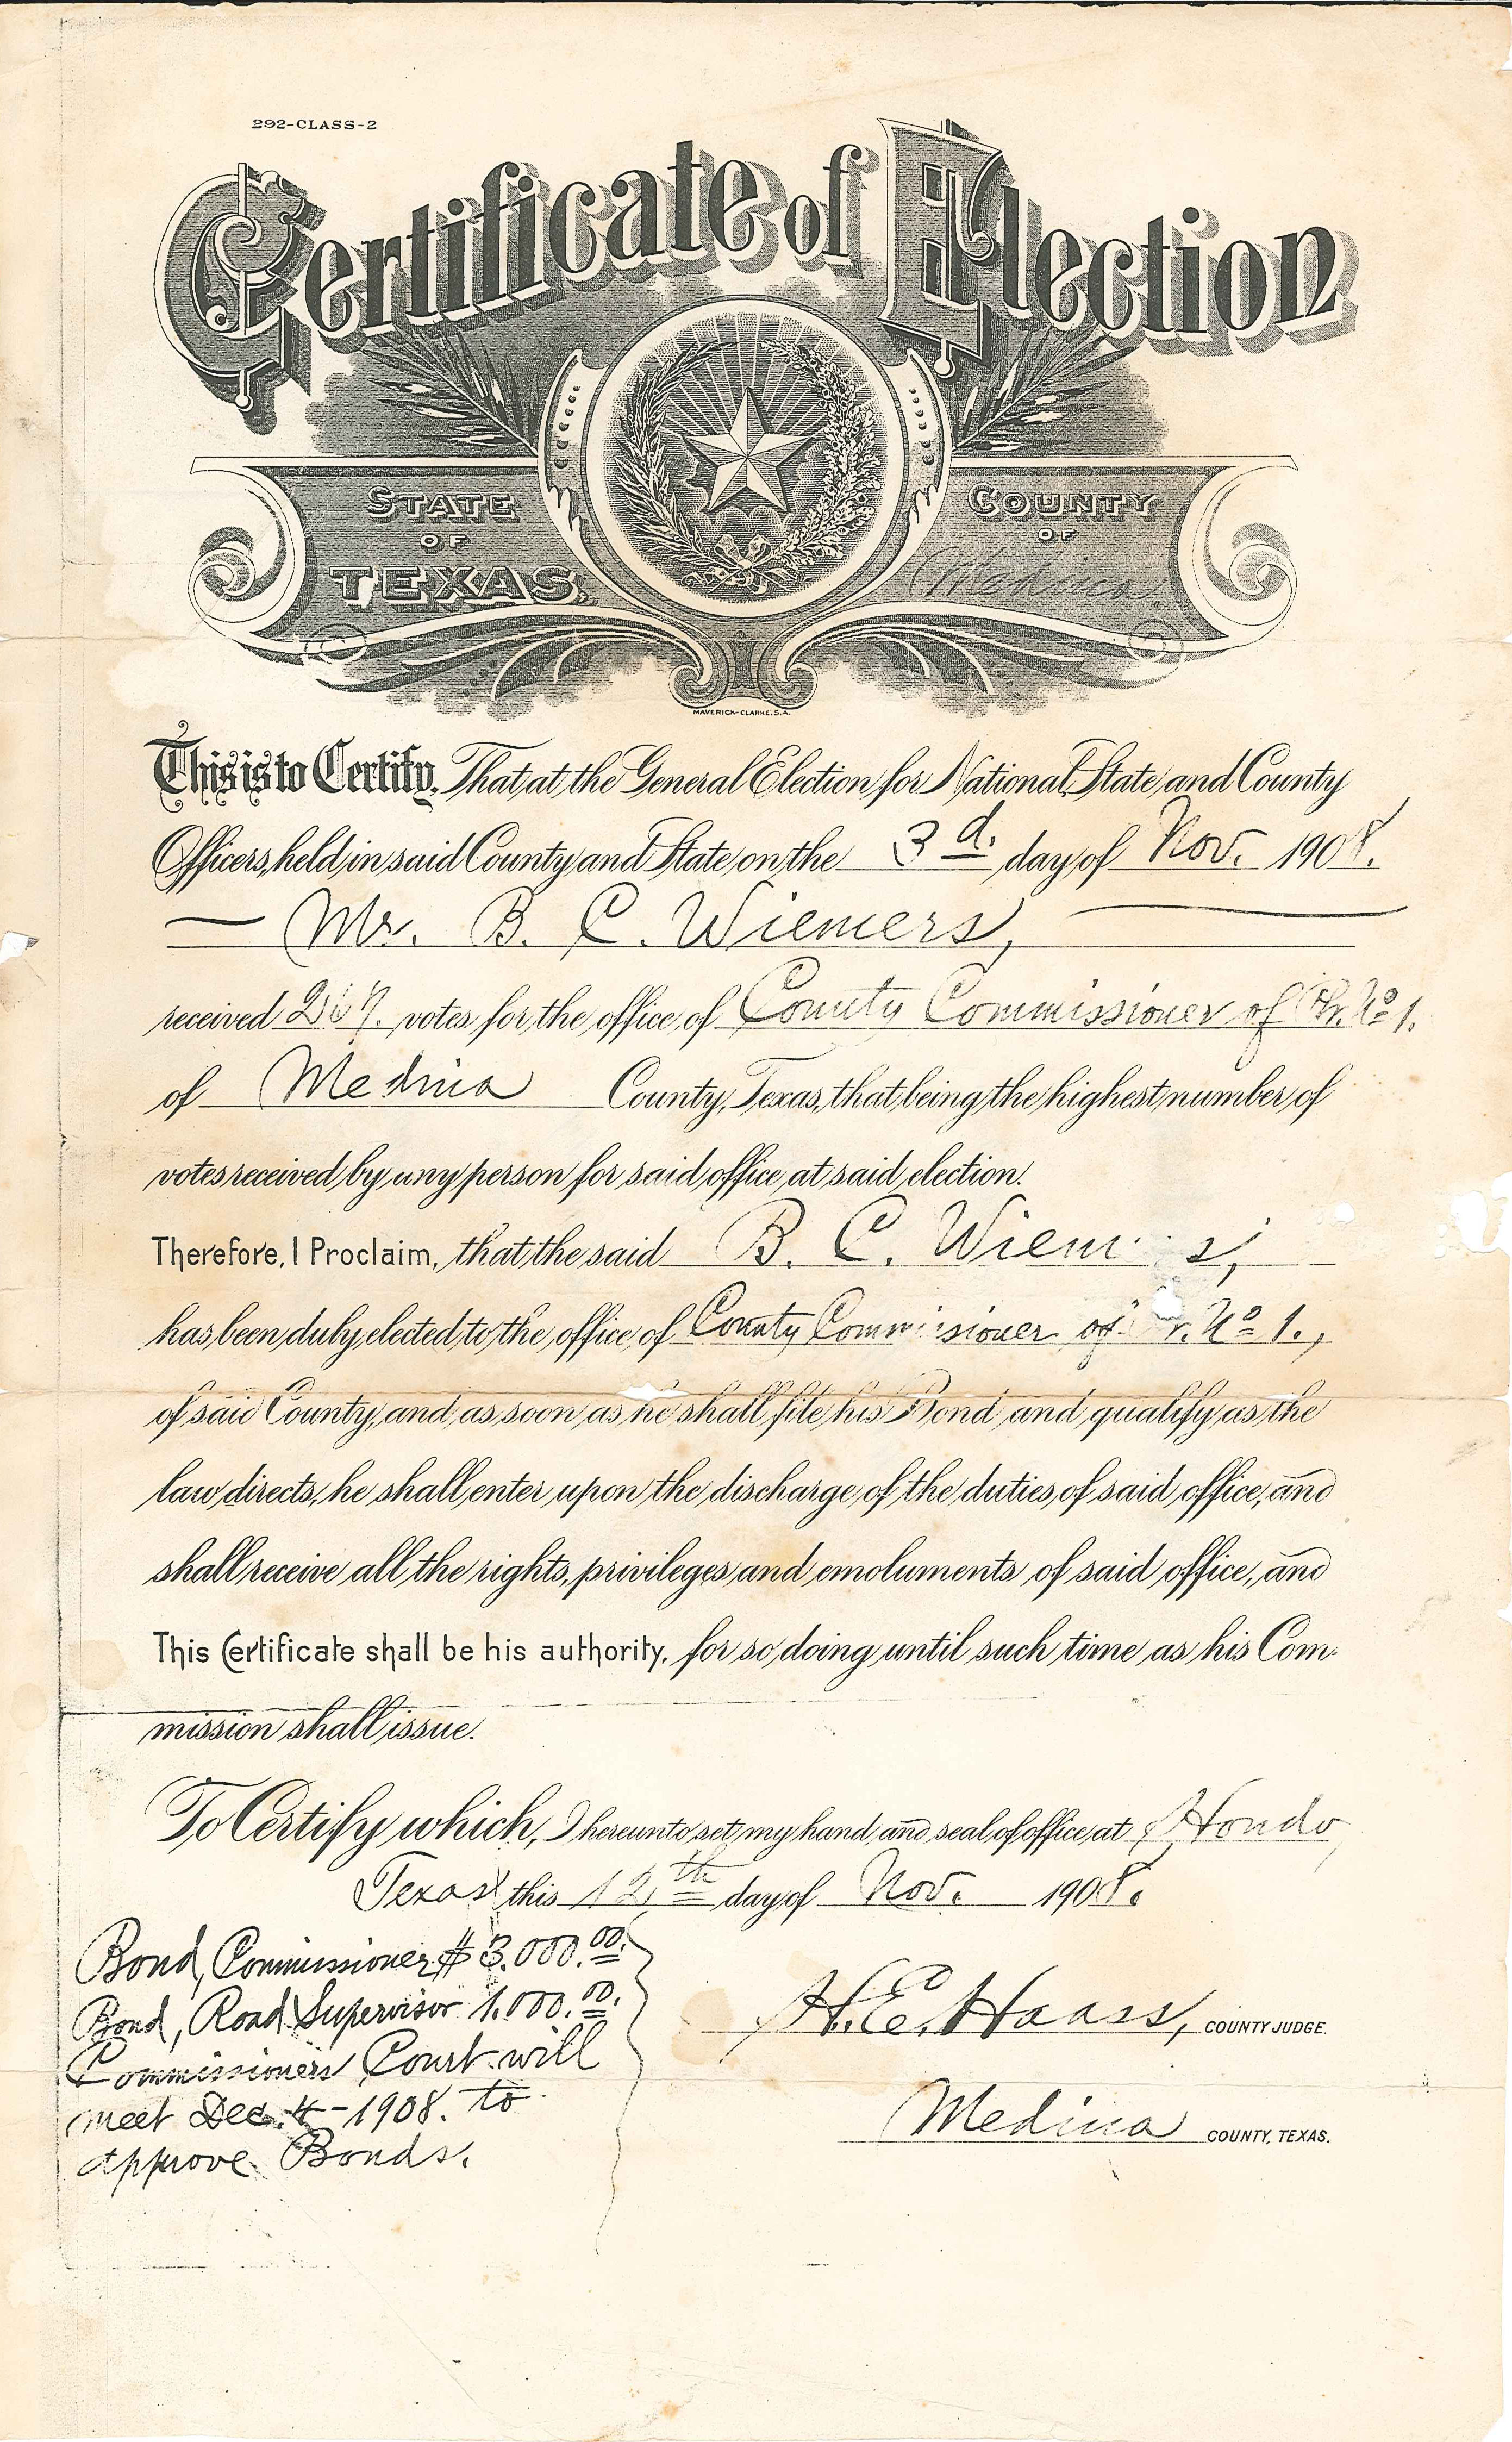 292-CLASS-2
Certificate of Election
STATE
OF
TEXAS,
COUNTY
OF
Medina.
MAVERICK-CLARKE, S.A.
This is to Certify, That at the General Election for National, State and County
Officers, held in said County and State on the 3d. day of Nov. 1908.
— Mr. B. C. Wiemers, —
received votes for the office of County Commissioner of Pr. No 1.
of Medina County, Texas, that being the highest number of
votes received by any person for said office, at said election.
Therefore, I Proclaim, that the said B. C. Wiem s,
has been duly elected to the office of County Commissioner of r. No 1.,
of said County, and as soon as he shall file his Bond and qualify as the
law directs, he shall enter upon the discharge of the duties of said office, and
shall receive all the rights, privileges and emoluments of said office, and
This Certificate shall be his authority, for so doing until such time as his Com-
mission shall issue.
To Certify which, I hereunto set my hand and seal of office, at Hondo,
Texas this 12th day of Nov. 1908.
Bond, Commissioner $3.000.00.
Bond, Road Supervisor 1.000.00.
Commissioners Court will
meet Dec. 4-1908. to
approve Bonds.
H. E. Haass, COUNTY JUDGE.
Medina COUNTY, TEXAS.